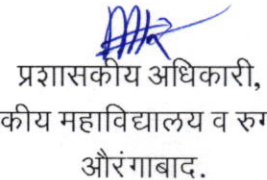 प्रशासकीय अधिकारी,
कीय महाविद्यालय व रुग
औरंगाबाद.